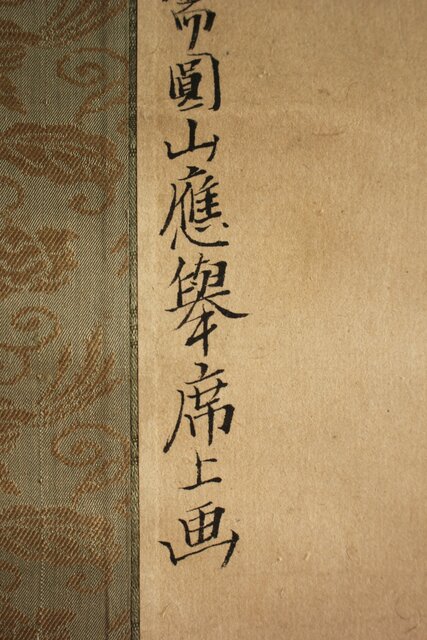 圓山應舉席上画